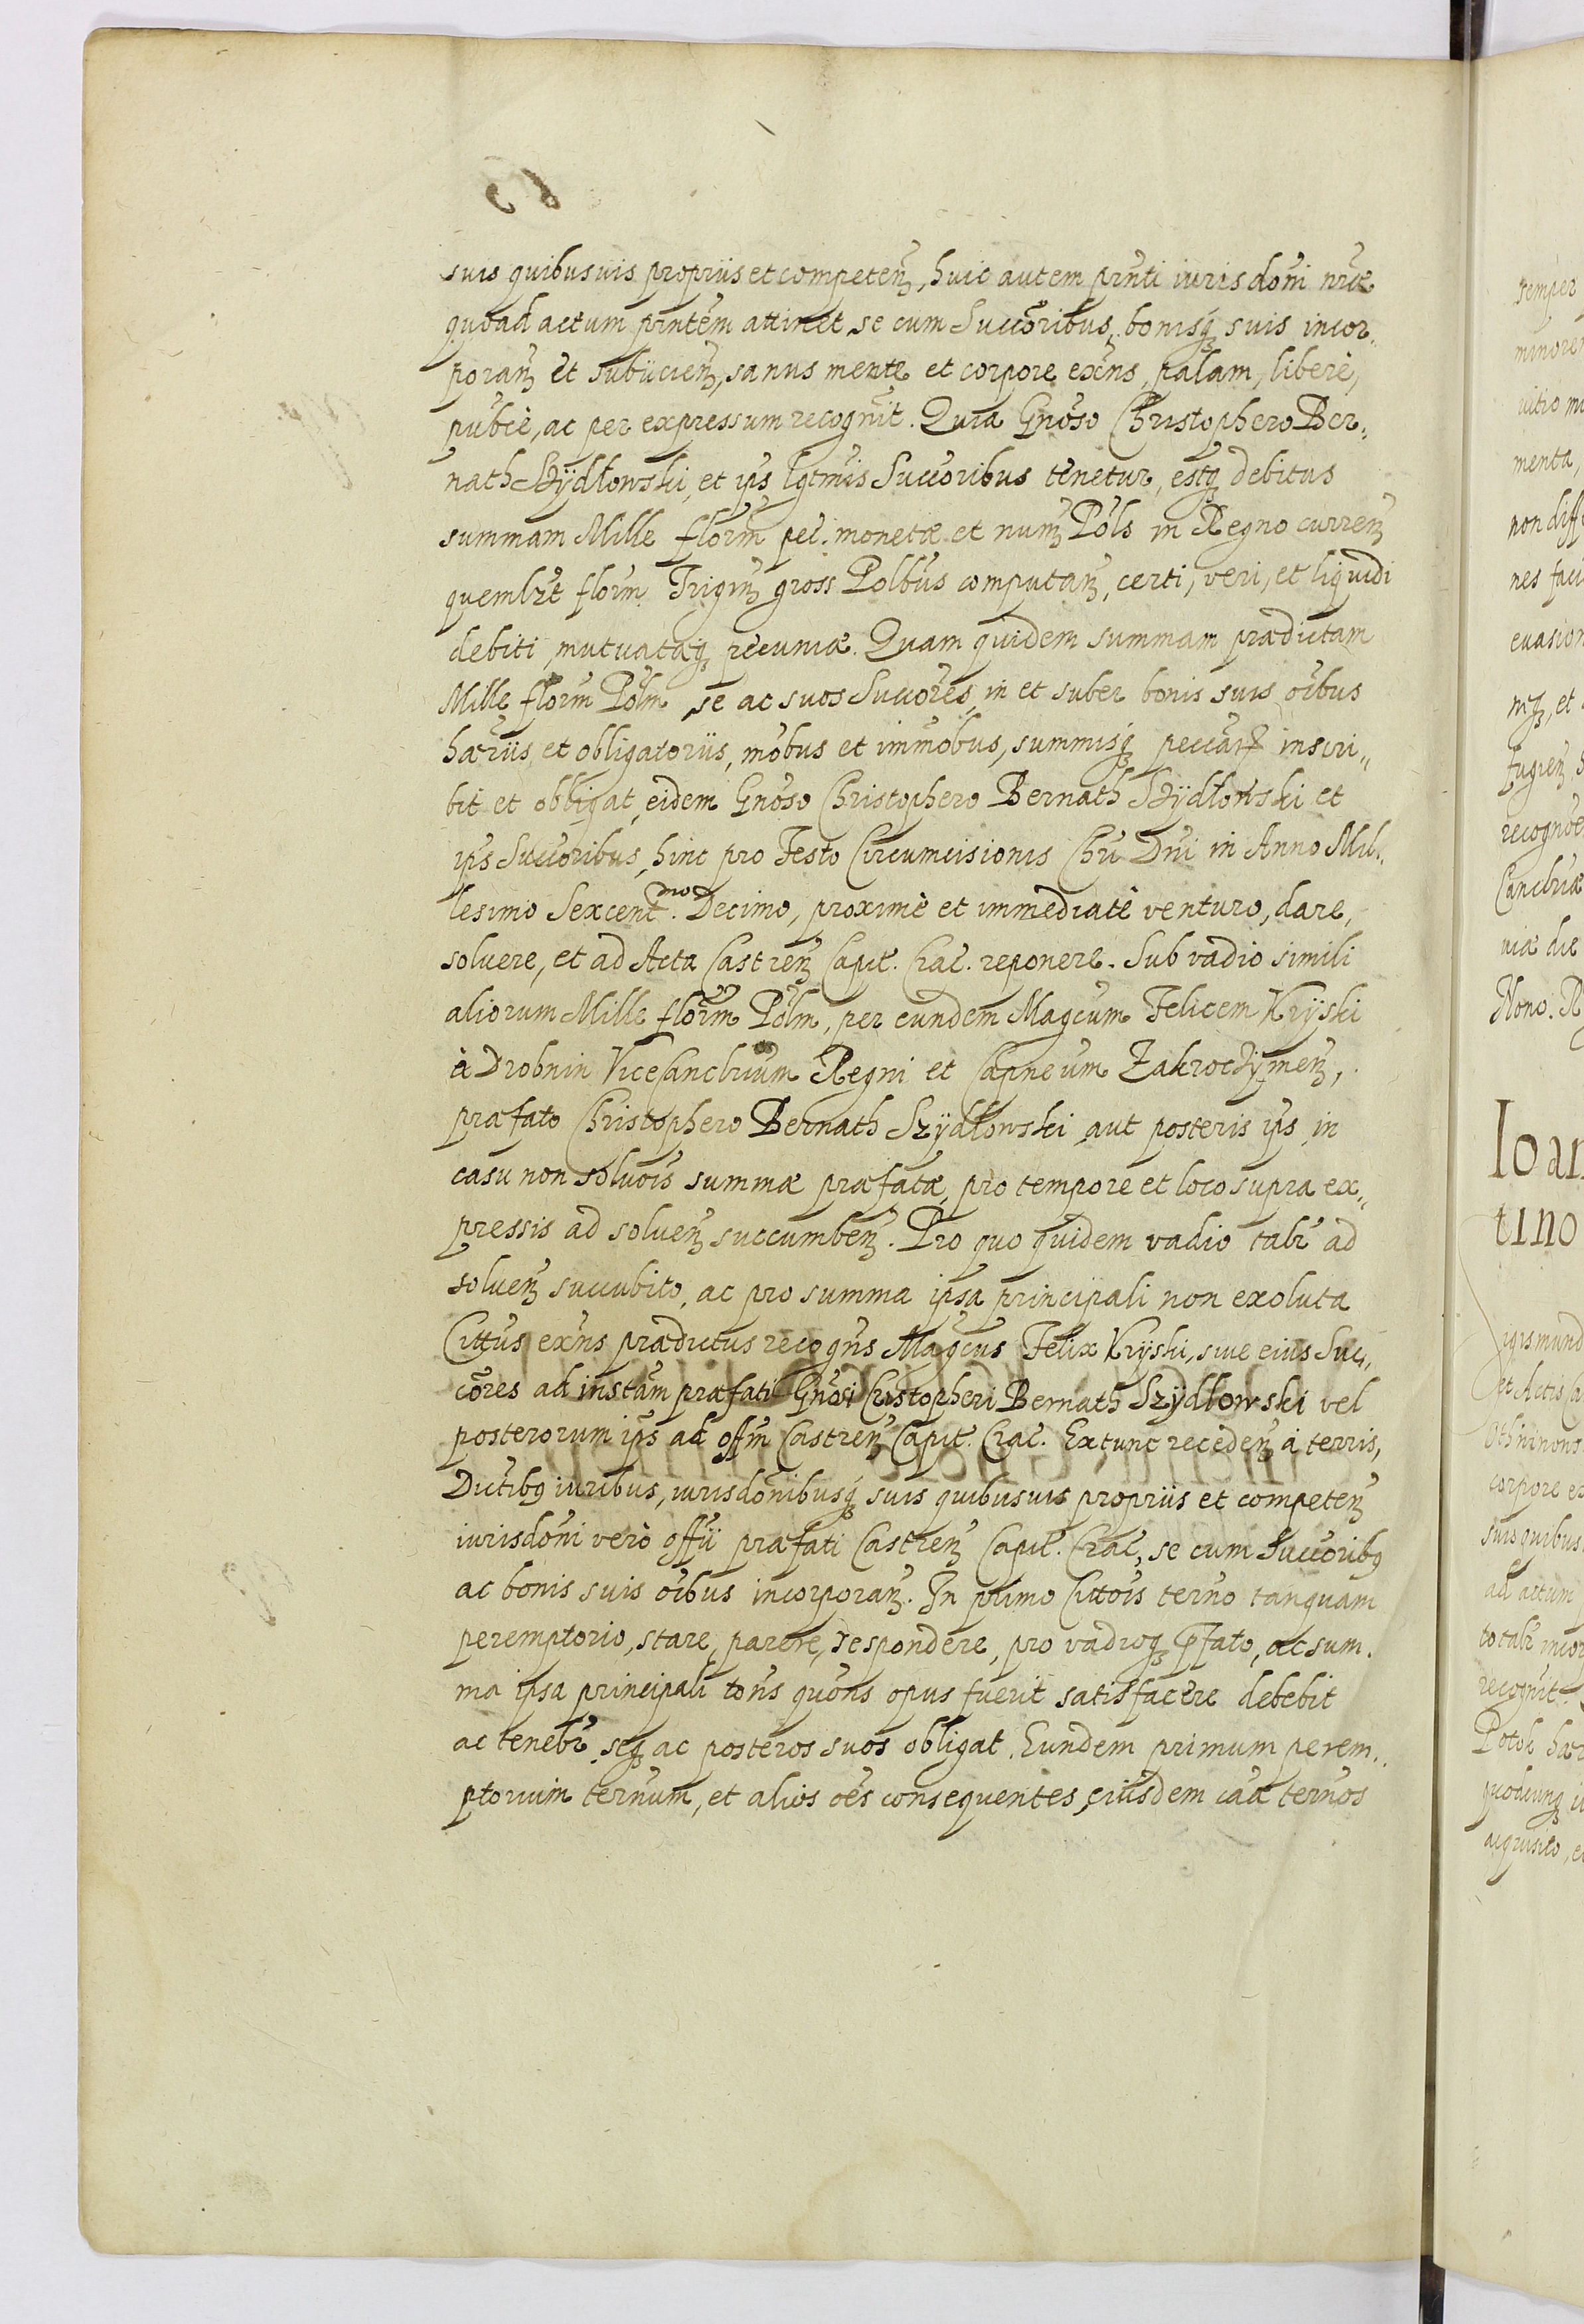 suis quibusuis propriis et competen̄, huic autem pñnti iurisdoñi nr̃æ
quoad actum pñntem attinet se cum Succoribus, bonisq́ suis incor„
poran̄ et subijcien̄, sanus mente et corpore exñs, palam, liberè,
publicè, ac per expressum recognit. Quia Gnoso Christophero Ber„
nath Szÿdłowski, et ips lgtmis Succoribus tenetur, estq́ debitus
summam Mille flor̃m pec. monetæ et num Pols in Regno curren̄
quemlzt flor̃m Trigin gross Polbus computan̄, certi, veri, et liquidi
debiti, mutuatæq́ pecuniæ. Quam quidem summam prædictam
Mille flor̃m Polm, se ac suos Succores, in et super bonis suis oibus
hæriis, et obligatoriis, mobus et immobus, summisq́ peccar̃ inscri„
bit et obligat, eidem Gnoso Christophero Bernath Szÿdłowski et
ips Succoribus, hinc pro Festo Circumcisionis Chri Dni in Anno Mil„
lesimo Sexcent.mo Decimo, proximè et immediatè venturo, dare,
soluere, et ad Acta Castren̄ Capit. Crac. reponere. Sub vadio simili
aliorum Mille flor̃m Polm, per eundem Magcum Felicem Krÿski
à Drobnin ViceCanclrium Regni et Capneum Zakroczÿmen̄,
præfato Christophero Bernath Szÿdłowski, aut posteris ips, in
casu non soluois summæ præfatæ, pro tempore et loco supra ex„
pressis ad soluen̄ succumben̄. Pro quo quidem vadio talr̃ ad
soluen̄ succubito, ac pro summa ipsa principali non exoluta
Cittus exñs prædictus recogñs Magcus Felix Krÿski, siue eius Suc„
cores ad instam præfati Gnosi Cristopheri Bernath Szÿdłowski vel
posterorum ips ad offm Castren̄ Capit. Crac. Extunc receden̄ à terris,
Districtibꝰ iuribus, iurisdonibusq́ suis quibusuis propriis et competen̄
iurisdoni verò offii præfati Castren̄ Capit. Crac, se cum Succoribꝰ
ac bonis suis oibus incorporan̄. In primo Cittois terno tanquam
peremptorio, stare, parere, respondere, pro vadioq́ pfato, ac sum„
ma ipsa principali tons quons opus fuerit satisfacere debebit
ac tenebr̃, seq́ ac posteros suos obligat. Eundem primum perem„
ptorium ternum, et alios oes consequentes, eiusdem cãa ternos